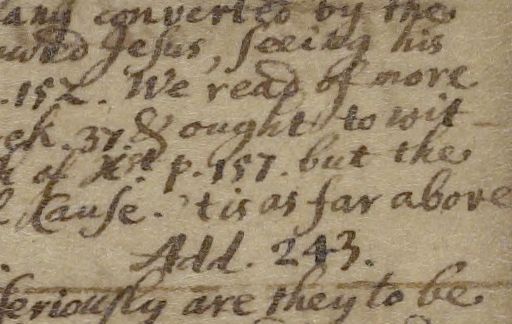 many converted by the
Jesus, seeing his
p. 152. We read of more
ek. 37. & ought to wit-
of Xst p. 157. but the
Cause. 'tis as far above
Add. 243.
seriously are they to be